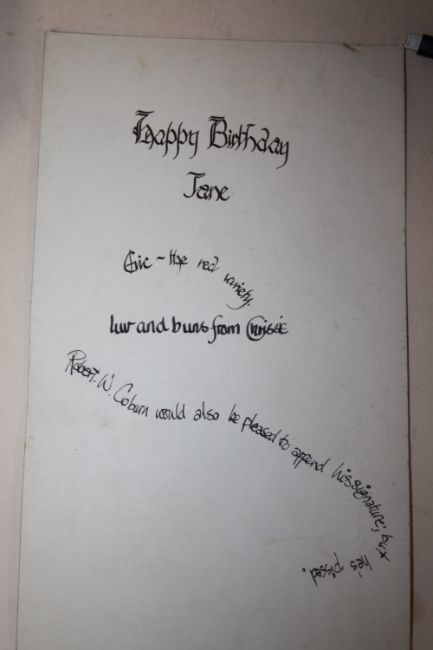 Happy Birthday
Jane
Eric - the real variety.
luv and buns from Chrissie
Robert. W. Coburn would also be pleased to append his signature; but
he's pissed.